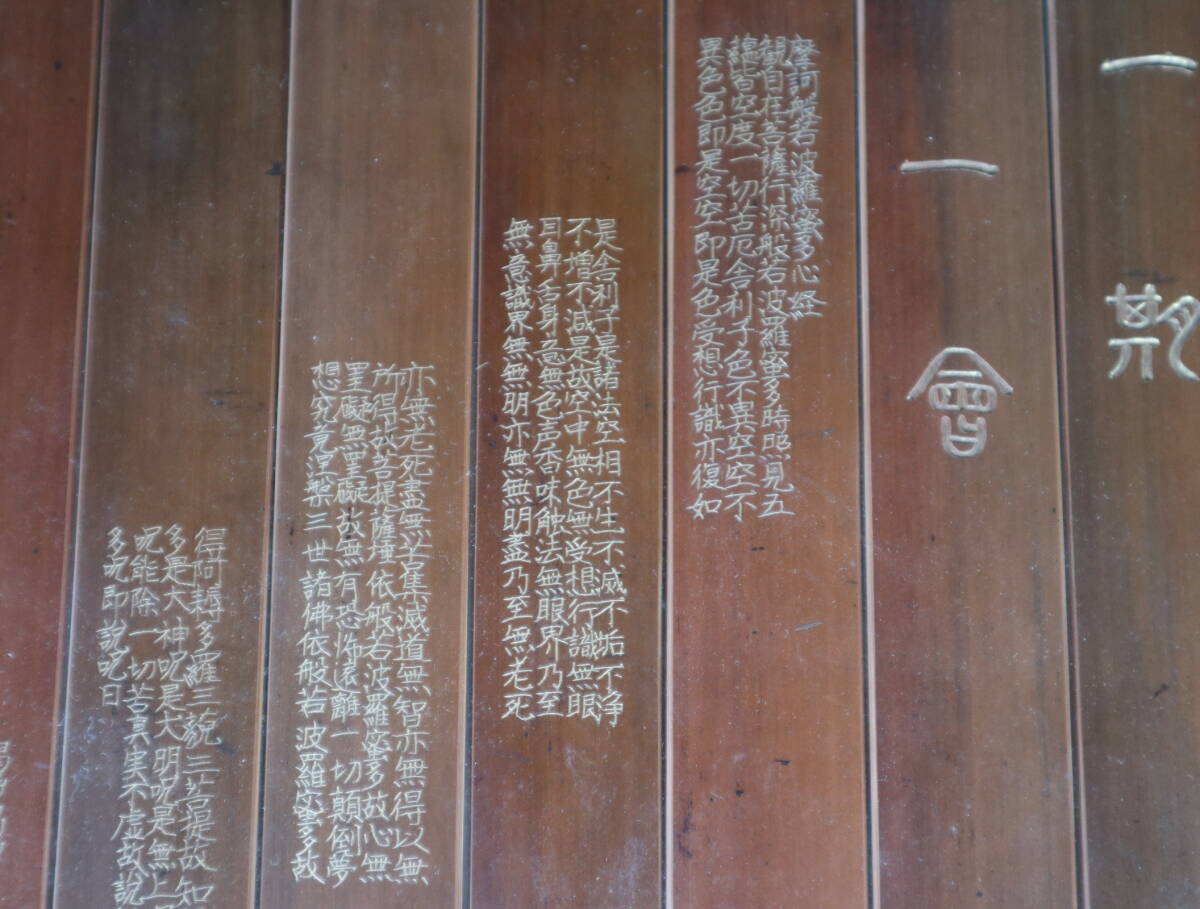 一期
一會
摩訶般若波羅蜜多心経
観自在菩薩行深般若波羅蜜多時照見五
蘊皆空度一切苦厄舎利子色不異空空不
異色色即是空空即是色受想行識亦復如
是舎利子是諸法空相不生不滅不垢不浄
不増不減是故空中無色無受想行識無眼
耳鼻舌身意無色声香味触法無眼界乃至
無意識界無無明亦無無明盡乃至無老死
亦無老死盡無苦集滅道無智亦無得以無
所得故菩提薩埵依般若波羅蜜多故心無
罣礙無罣礙故無有恐怖遠離一切顛倒夢
想究竟涅槃三世諸佛依般若波羅蜜多故
得阿耨多羅三藐三菩提故知
多是大神呪是大明呪是無上
呪能除一切苦真実不虚故説
多呪即説呪曰